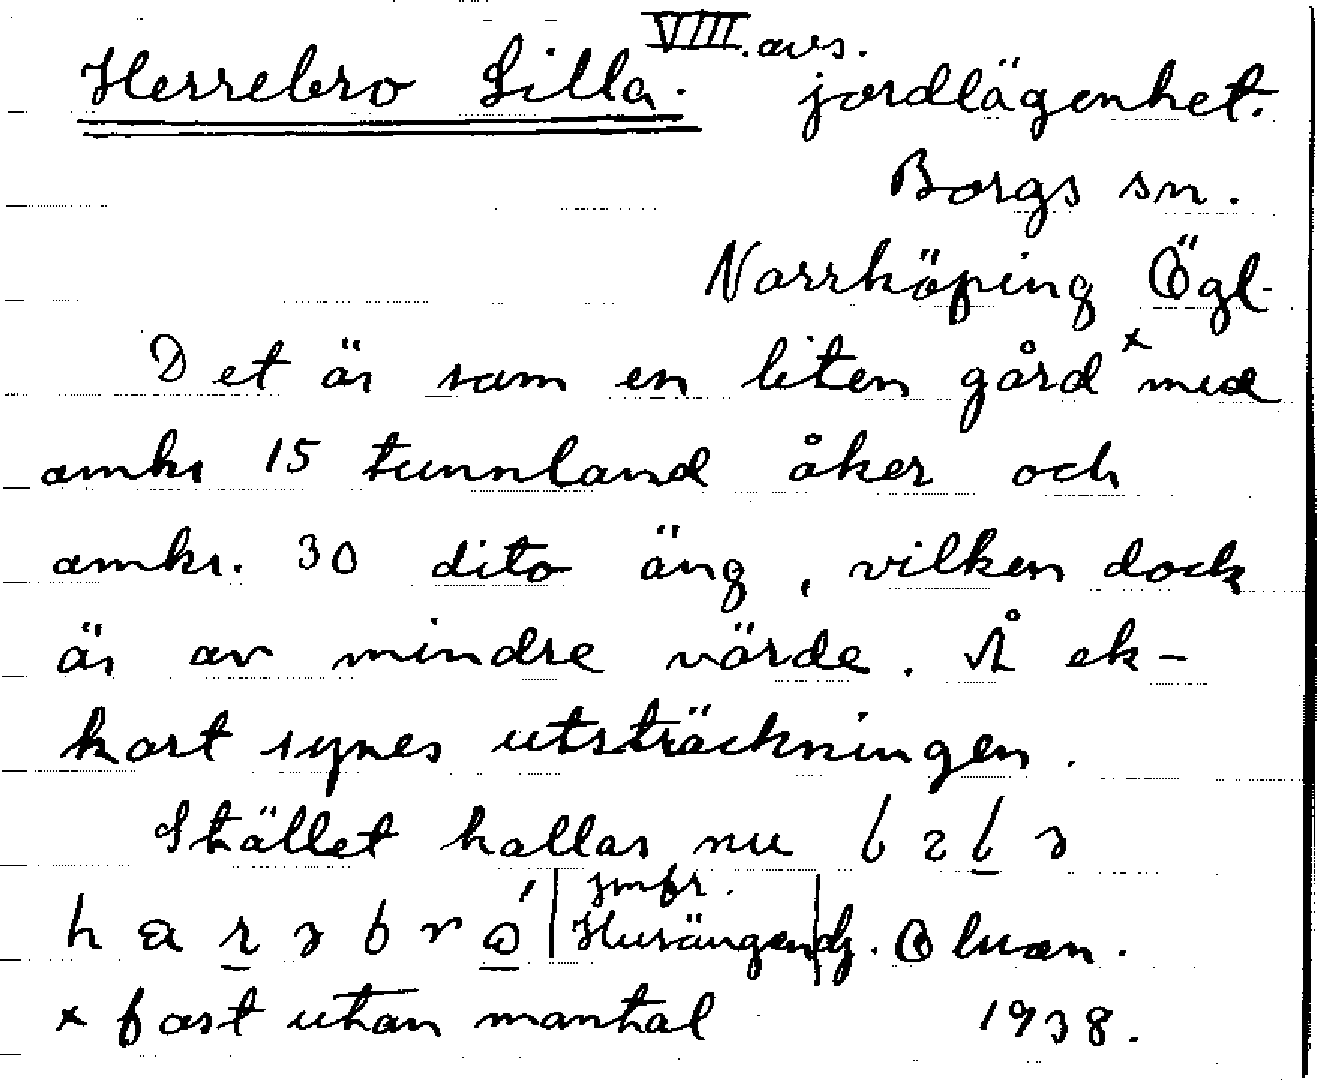 VIII. avs.
Herrebro Lilla. jordlägenhet.
Borgs sn.
Norrköping Ögl.
Det är som en liten gård x med
omkr 15 tunnland åker och
omkr. 30 dito äng, vilken dock
är av mindre värde. Å ek-
kort synes utsträckningen.
Stället kallas nu
jmfr.
Husängen
x fast utan mantal 1938.